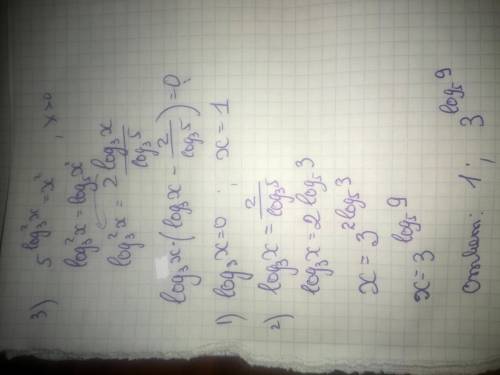 3) 5^{log₃²x} = x² , x>0
log₃²x = log₅x²
log₃²x = 2 log₃x / log₃5
log₃x·(log₃x − 2/log₃5) = 0
1) log₃x=0 ; x=1
2) log₃x = 2/log₃5
log₃x = 2 log₅3
x = 3^{2log₅3}
x = 3^{log₅9}
ответ: 1 ; 3^{log₅9}